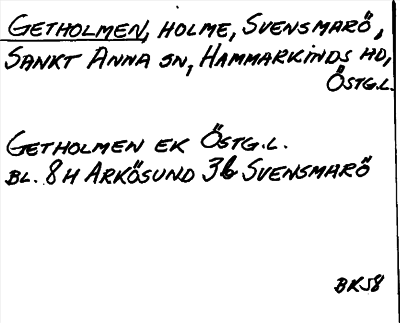 GETHOLMEN, HOLME, SVENSMARÖ,
SANKT ANNA SN, HAMMARKINDS HD,
ÖSTG.L.
GETHOLMEN EK ÖSTG.L.
BL. 8H ARKÖSUND 3b SVENSMARÖ
BK58